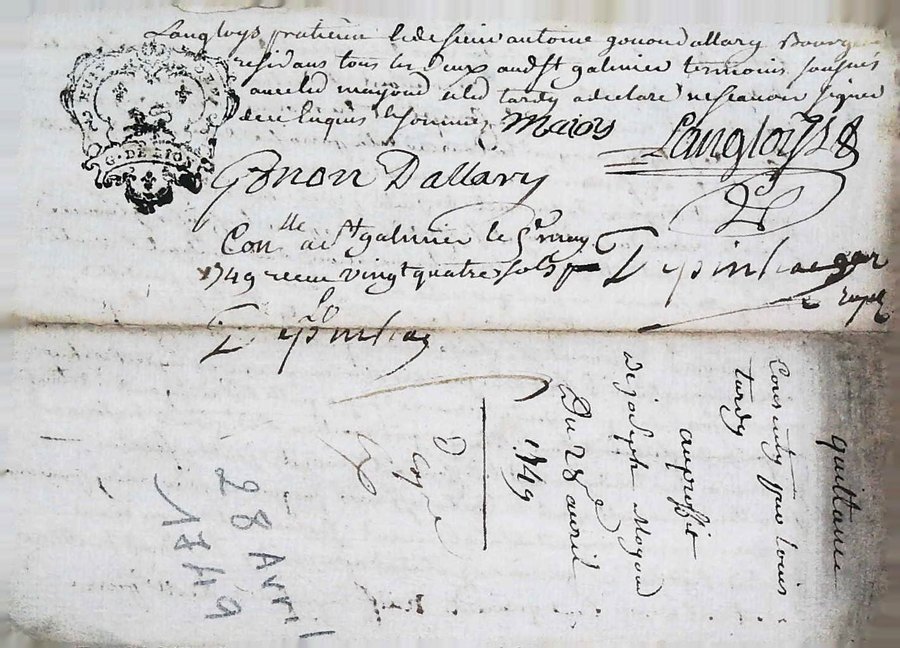 Langloys praticien et de sieur antoine gonon Dallary Bourgeois
residans tous les deux aud St galmier temoins soussignes
avec led mayoud et led tardy a declaré ne scavoir signer
de ce enquis et sommé, Maioy
Langloys
Gonon Dallary
G. DE LION
Con lle a St galmier le
1749 recu vingt quatre sols
Depinhac
quittance
Consenty par Louis
tardy
au proffit
De joseph Moyoud
Du 28 avril
1749
28 Avril
1749